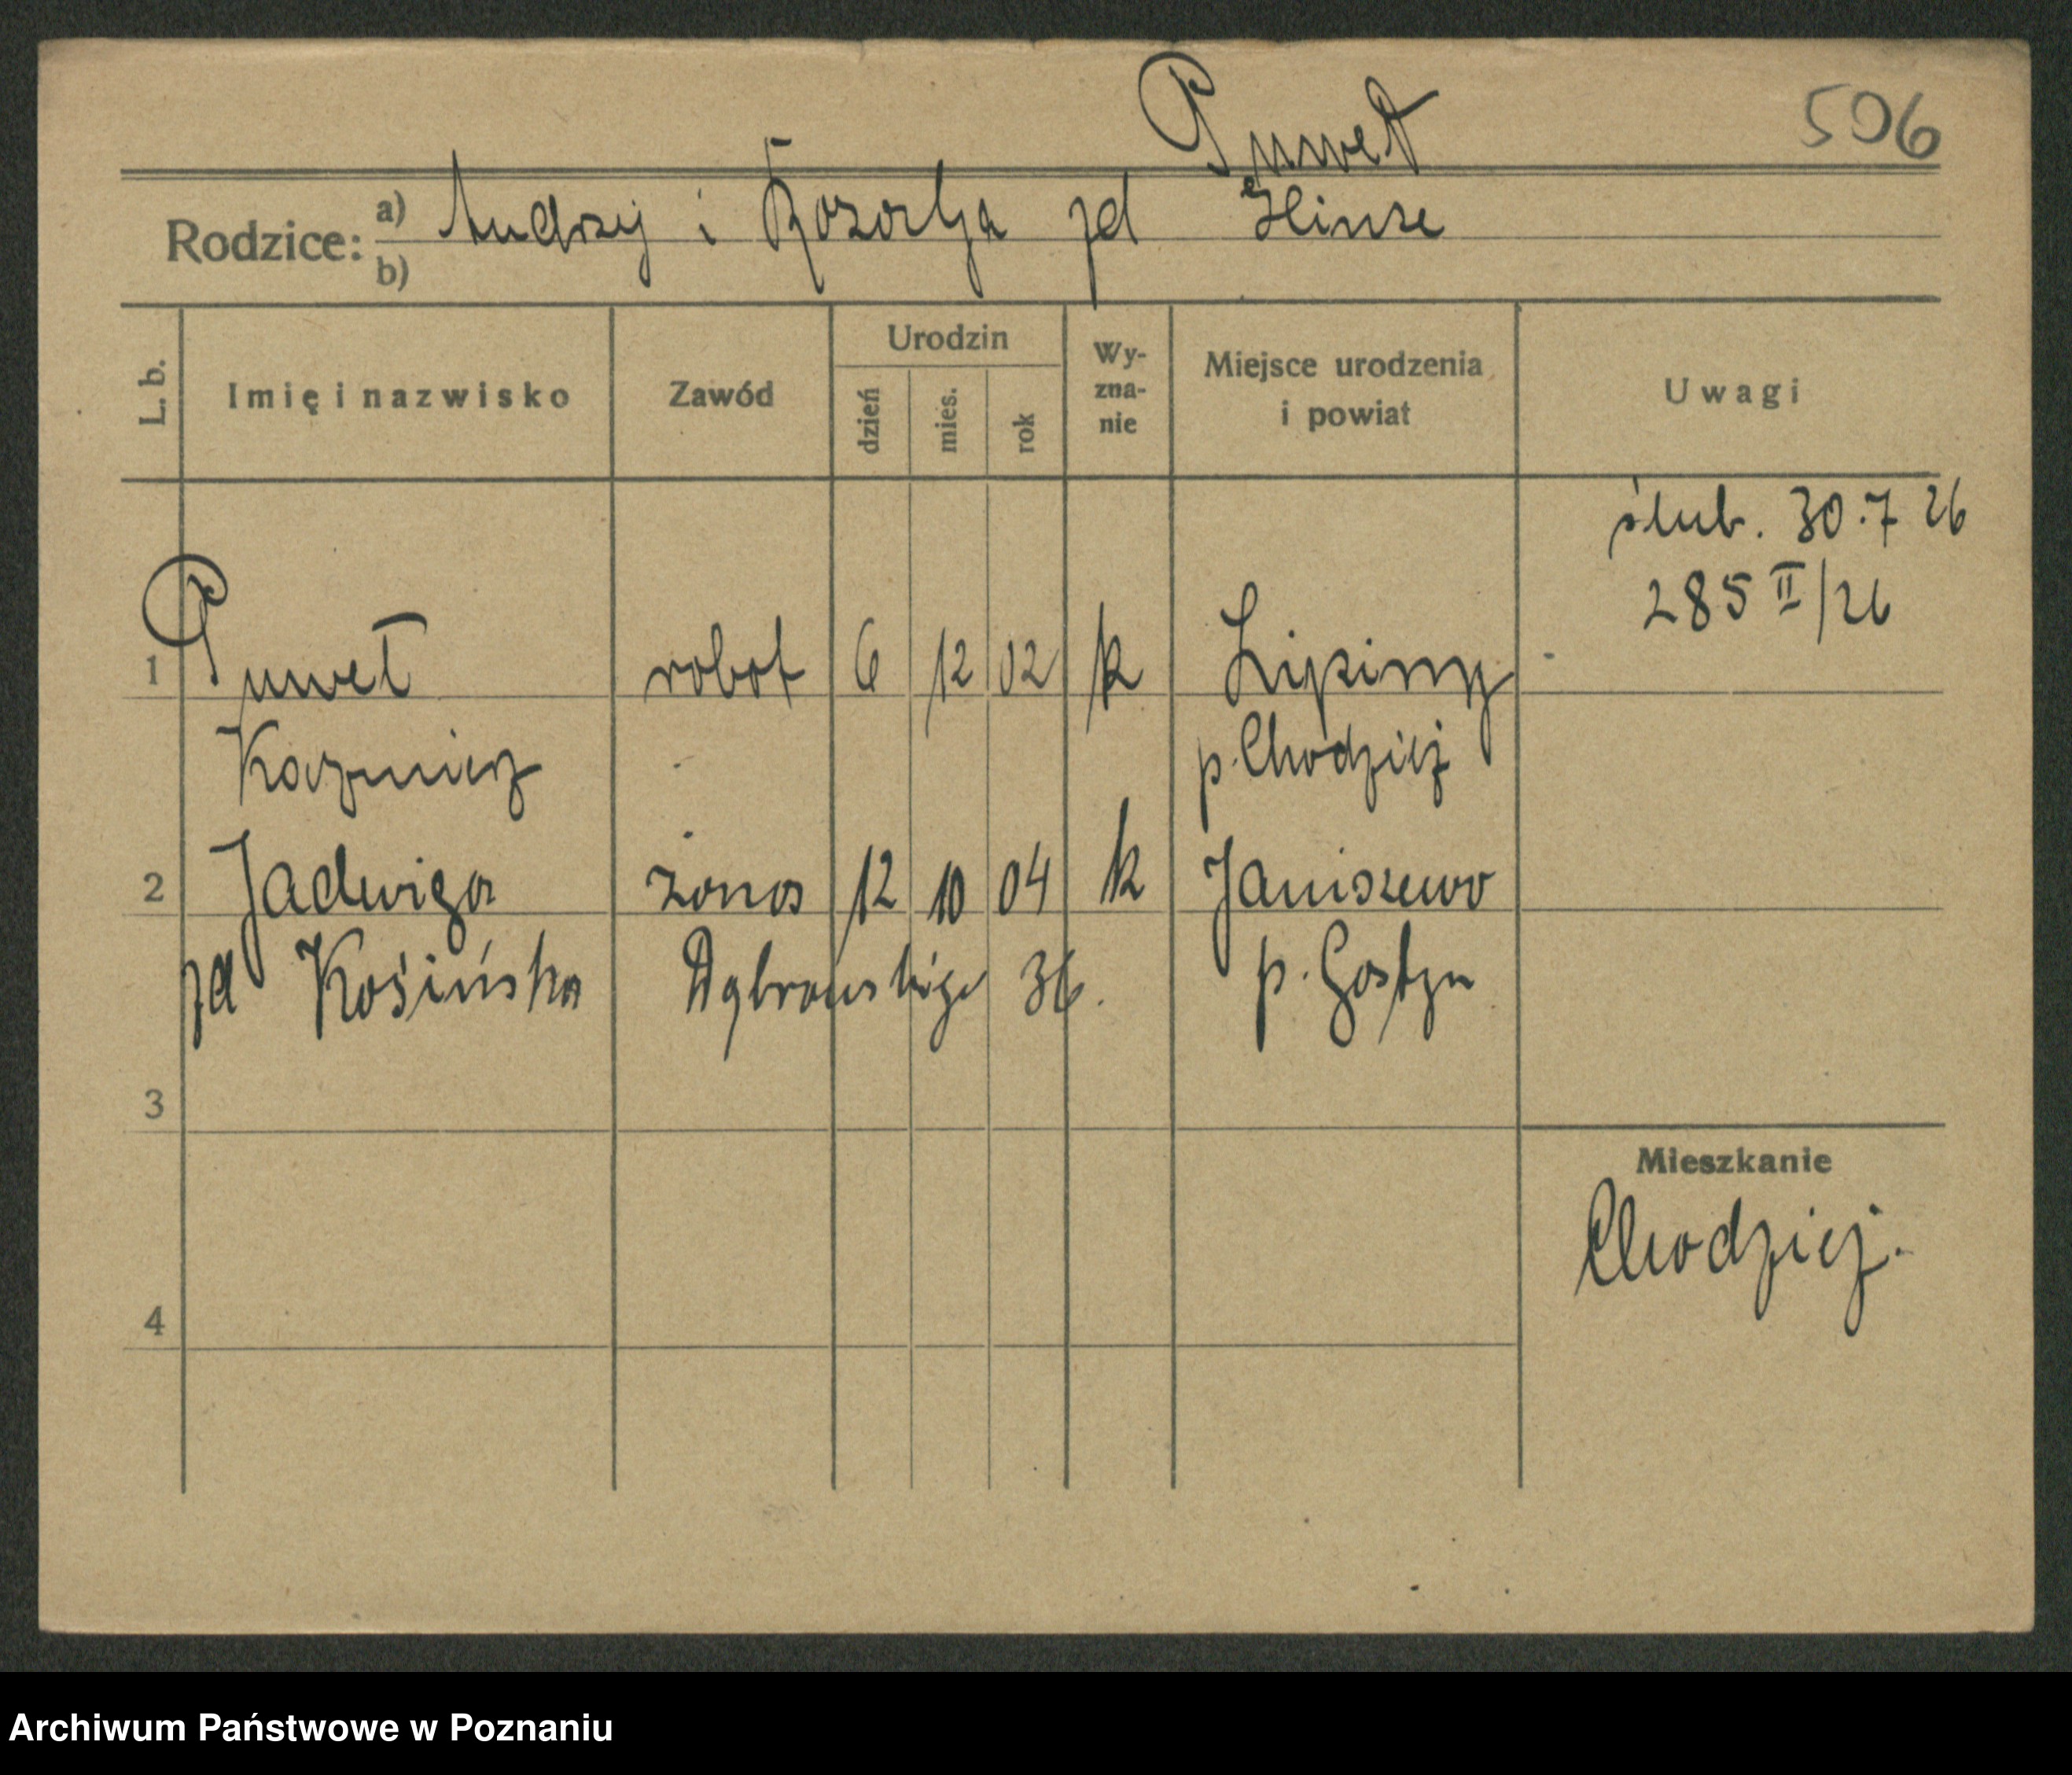 Puweł
506
Rodzice: a) Andrzej i Rozalja zd Hinze
b)
L. b.
Imię i nazwisko
Zawód
Urodzin
dzień
mies.
rok
Wy-
zna-
nie
Miejsce urodzenia
i powiat
Uwagi
ślub. 30.7 26
285 II/26
1 Puweł robot 6 12 02 k Lipiny
Kazmierz p. Chodzież
2 Jadwiga żona 12 10 04 k Janiszewo
zd Kosińska Dąbrowskiego 36. p. Gostyn
3
Mieszkanie
Chodzież.
4
Archiwum Państwowe w Poznaniu